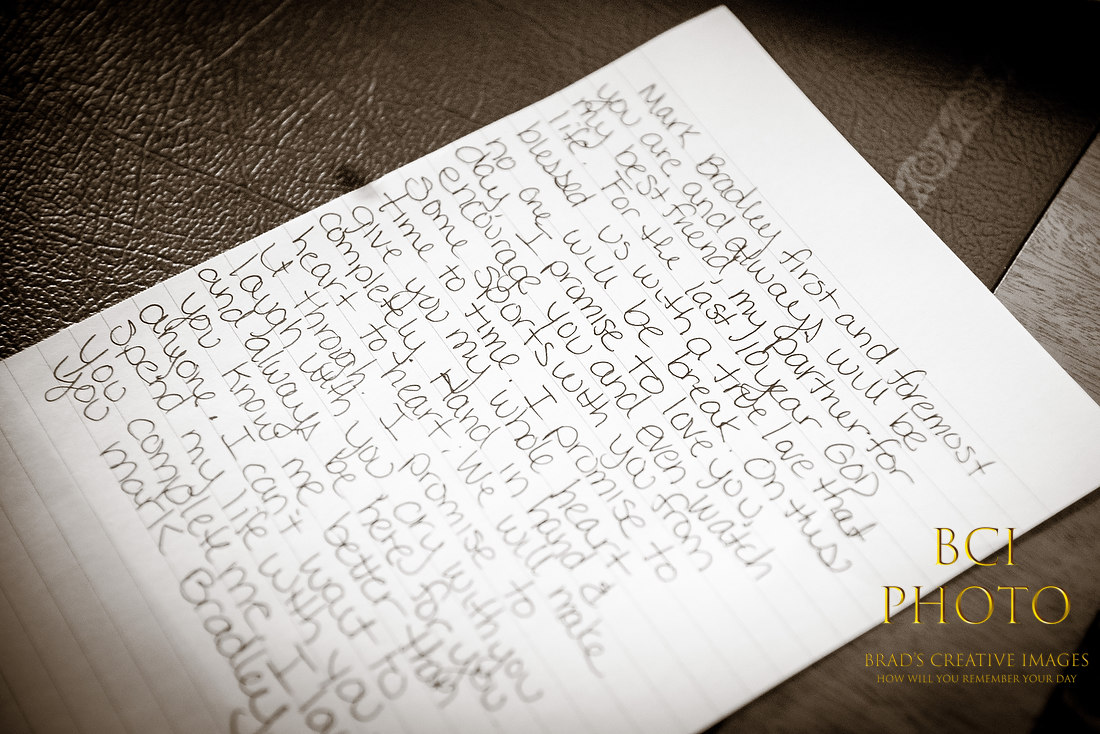 Mark Bradley first and foremost
you are and always will be
my best friend, my partner for
life. For the last 10year GOD
blessed us with a true love that
no one will be break. On this
day I promise to love you,
encourage you and even watch
some sports with you from
time to time. I promise to
give you my whole heart
completely. Hand in hand &
heart to heart. We will make
it through. I promise to
laugh with you cry with you
and always be here for you
you know me better than
anyone. I can't wait to
spend my life with you
you complete me. I lo
you mark Bradley
BCI
PHOTO
BRAD'S CREATIVE IMAGES
HOW WILL YOU REMEMBER YOUR DAY